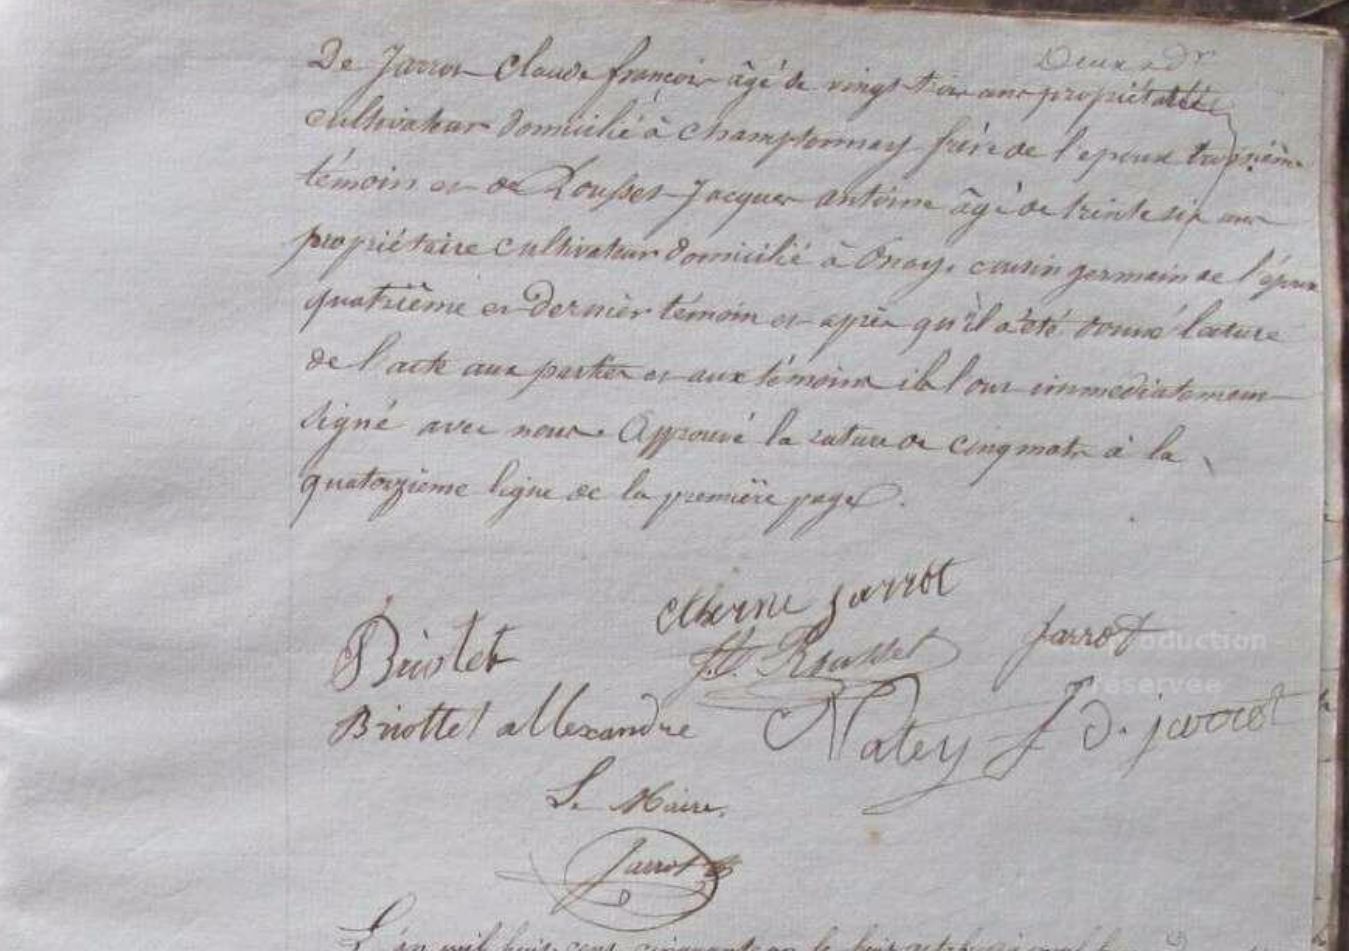 De Jarrot Claude françois âgé de vingt trois ans propriétaire
cultivateur domicilié à Champtonnay frère de l'époux troisième
témoin et de Rousset Jacques antoine âgé de trente six ans
propriétaire cultivateur domicilié à Onay, cousin germain de l'époux
quatrième et dernier témoin et après qu'il a été donné lecture
de l'acte aux parties et aux témoins ils l'ont immédiatement
signé avec nous. Approuvé la rature de cinq mots à la
quatorzième ligne de la première page.
etienne jarrot
Briotet
J.A. Rousset
jarrot
Briottet allexandre
Natey
J d. jarrot
Le Maire,
Jarrot
L'an mil huit cent cinquante un le huit